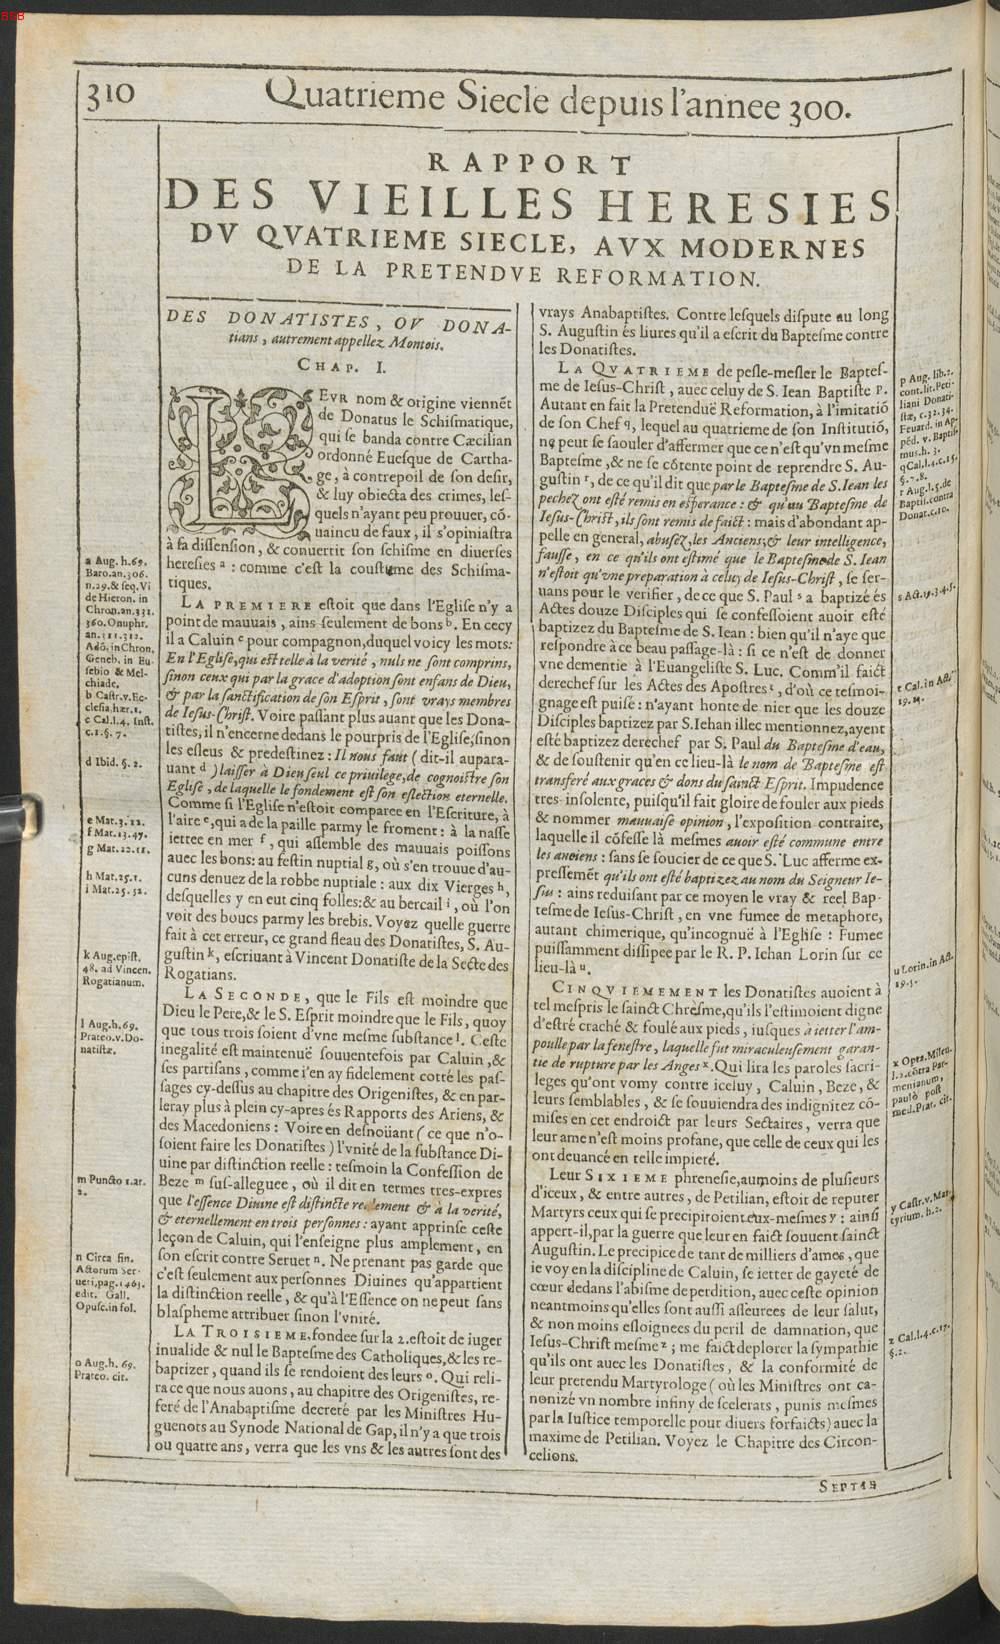 BSB
310
Quatrieme Siecle depuis l'annee 300.
RAPPORT
DES VIEILLES HERESIES
DV QVATRIEME SIECLE, AVX MODERNES
DE LA PRETENDVE REFORMATION.
DES DONATISTES, OV DONA-
tians, autrement appellez Montois.
CHAP. I.
LEVR nom & origine viennẽt
de Donatus le Schismatique,
qui se banda contre Cæcilian
ordonné Euesque de Cartha-
ge, à contrepoil de son desir,
& luy obiecta des crimes, les-
quels n'ayant peu prouuer, cõ-
uaincu de faux, il s'opiniastra
à sa dissension, & conuertit son schisme en diuerses
heresies a : comme c'est la coustume des Schisma-
tiques.
LA PREMIERE estoit que dans l'Eglise n'y a
point de mauuais, ains seulement de bons b. En cecy
il a Caluin c pour compagnon, duquel voicy les mots:
En l'Eglise, qui est telle à la verité, nuls ne sont comprins,
sinon ceux qui par la grace d'adoption sont enfans de Dieu,
& par la sanctification de son Esprit, sont vrays membres
de Iesus-Christ. Voire passant plus auant que les Dona-
tistes, il n'encerne dedans le pourpris de l'Eglise, sinon
les esleus & predestinez : Il nous faut (dit-il aupara-
uant d ) laisser à Dieu seul ce priuilege, de cognoistre son
Eglise, de laquelle le fondement est son eslection eternelle.
Comme si l'Eglise n'estoit comparee en l'Escriture, à
l'aire e, qui a de la paille parmy le froment : à la nasse
iettee en mer f, qui assemble des mauuais poissons
auec les bons: au festin nuptial g, où s'en trouue d'au-
cuns denuez de la robbe nuptiale : aux dix Vierges h,
desquelles y en eut cinq folles: & au bercail i, où l'on
voit des boucs parmy les brebis. Voyez quelle guerre
fait à cet erreur, ce grand fleau des Donatistes, S. Au-
gustin k, escriuant à Vincent Donatiste de la Secte des
Rogatians.
LA SECONDE, que le Fils est moindre que
Dieu le Pere, & le S. Esprit moindre que le Fils, quoy
que tous trois soient d'vne mesme substance l. Ceste
inegalité est maintenuë souuentefois par Caluin, &
ses partisans, comme i'en ay fidelement cotté les pas-
sages cy-dessus au chapitre des Origenistes, & en par-
leray plus à plein cy-apres és Rapports des Ariens, &
des Macedoniens : Voire en desnoüant (ce que n'o-
soient faire les Donatistes) l'vnité de la substance Di-
uine par distinction reelle : tesmoin la Confession de
Beze m sus-alleguee, où il dit en termes tres-expres
que l'essence Diuine est distincte reellement & à la verité,
& eternellement en trois personnes : ayant apprinse ceste
leçon de Caluin, qui l'enseigne plus amplement, en
son escrit contre Seruet n. Ne prenant pas garde que
c'est seulement aux personnes Diuines qu'appartient
la distinction reelle, & qu'à l'Essence on ne peut sans
blaspheme attribuer sinon l'vnité.
LA TROISIEME, fondee sur la 2. estoit de iuger
inualide & nul le Baptesme des Catholiques, & les re-
baptizer, quand ils se rendoient des leurs o. Qui reli-
ra ce que nous auons, au chapitre des Origenistes, re-
feré de l'Anabaptisme decreté par les Ministres Hu-
guenots au Synode National de Gap, il n'y a que trois
ou quatre ans, verra que les vns & les autres sont des
a Aug. h. 69.
Baro. an. 306.
n. 29. & seq. Vi
de Hieron. in
Chron. an. 331.
360. Onuphr.
an. 311. 312.
Adõ. in Chron.
Geneb. in Eu-
sebio & Mel-
chiade.
b Castr. v. Ec-
clesia. hær. 1.
c Cal. l. 4. Inst.
c. 1. §. 7.
d Ibid. §. 2.
e Mat. 3. 12.
f Mat. 13. 47.
g Mat. 22. 11.
h Mat. 25. 1.
i Mat. 25. 32.
k Aug. epist.
48. ad Vincen.
Rogatianum.
l Aug. h. 69.
Prateo. v. Do-
natistæ.
m Puncto 1. ar.
2.
n Circa fin.
Actorum Ser-
ueti, pag. 1463.
edit. Gall.
Opusc. in fol.
o Aug. h. 69.
Prateo. cit.
vrays Anabaptistes. Contre lesquels dispute au long
S. Augustin és liures qu'il a escrit du Baptesme contre
les Donatistes.
LA QVATRIEME de pesle-mesler le Baptes-
me de Iesus-Christ, auec celuy de S. Iean Baptiste p.
Autant en fait la Pretenduë Reformation, à l'imitatiõ
de son Chef q, lequel au quatrieme de son Institutiõ,
ne peut se saouler d'affermer que ce n'est qu'vn mesme
Baptesme, & ne se cõtente point de reprendre S. Au-
gustin r, de ce qu'il dit que par le Baptesme de S. Iean les
pechez ont esté remis en esperance : & qu'au Baptesme de
Iesus-Christ, ils sont remis de faict : mais d'abondant ap-
pelle en general, abusez, les Anciens, & leur intelligence,
fausse, en ce qu'ils ont estimé que le Baptesme de S. Iean
n'estoit qu'vne preparation à celuy de Iesus-Christ, se ser-
uans pour le verifier, de ce que S. Paul s a baptizé és
Actes douze Disciples qui se confessoient auoir esté
baptizez du Baptesme de S. Iean : bien qu'il n'aye que
respondre à ce beau passage-là : si ce n'est de donner
vne dementie à l'Euangeliste S. Luc. Comm'il faict
derechef sur les Actes des Apostres t, d'où ce tesmoi-
gnage est puisé : n'ayant honte de nier que les douze
Disciples baptizez par S. Iehan illec mentionnez, ayent
esté baptizez derechef par S. Paul du Baptesme d'eau,
& de soustenir qu'en ce lieu-là le nom de Baptesme est
transferé aux graces & dons du sainct Esprit. Impudence
tres-insolente, puisqu'il fait gloire de fouler aux pieds
& nommer mauuaise opinion, l'exposition contraire,
laquelle il cõfesse là mesmes auoir esté commune entre
les anciens : sans se soucier de ce que S. Luc afferme ex-
pressemẽt qu'ils ont esté baptizez au nom du Seigneur Ie-
sus : ains reduisant par ce moyen le vray & reel Bap-
tesme de Iesus-Christ, en vne fumee de metaphore,
autant chimerique, qu'incognuë à l'Eglise : Fumee
puissamment dissipee par le R. P. Iehan Lorin sur ce
lieu-là u.
CINQVIEMEMENT les Donatistes auoient à
tel mespris le sainct Chresme, qu'ils l'estimoient digne
d'estre craché & foulé aux pieds, iusques à ietter l'am-
poulle par la fenestre, laquelle fut miraculeusement garan-
tie de rupture par les Anges x. Qui lira les paroles sacri-
leges qu'ont vomy contre iceluy, Caluin, Beze, &
leurs semblables, & se souuiendra des indignitez cõ-
mises en cet endroict par leurs Sectaires, verra que
leur ame n'est moins profane, que celle de ceux qui les
ont deuancé en telle impieté.
Leur SIXIEME phrenesie, aumoins de plusieurs
d'iceux, & entre autres, de Petilian, estoit de reputer
Martyrs ceux qui se precipiroient eux-mesmes y : ainsi
appert-il, par la guerre que leur en faict souuent sainct
Augustin. Le precipice de tant de milliers d'ames, que
ie voy en la discipline de Caluin, se ietter de gayeté de
cœur dedans l'abisme de perdition, auec ceste opinion
neantmoins qu'elles sont aussi asseurees de leur salut,
& non moins esloignees du peril de damnation, que
Iesus-Christ mesme z ; me faict deplorer la sympathie
qu'ils ont auec les Donatistes, & la conformité de
leur pretendu Martyrologe (où les Ministres ont ca-
nonizé vn nombre infiny de scelerats, punis mesmes
par la Iustice temporelle pour diuers forfaicts) auec la
maxime de Petilian. Voyez le Chapitre des Circon-
celions.
p Aug. lib. 2.
cont. lit. Peti-
liani Donati-
stæ, c. 32. 34.
Feuard. in Ap-
pẽd. v. Baptis-
mus. h. 3.
q Cal. l. 4. c. 15.
§. 7. 8.
r Aug. l. 5. de
Baptis. contra
Donat. c. 10.
s Act. 19. 3. 4. 5.
t Cal. in Act.
19.
u Lorin. in Act.
19. 5.
x Opta. Mileu.
l. 2. cõtra Par-
menianum,
paulò post
med. Prat. cit.
y Castr. v. Mar-
tyrium. h. 2.
z Cal. l. 4. c. 17.
§. 2.
SEPTIE